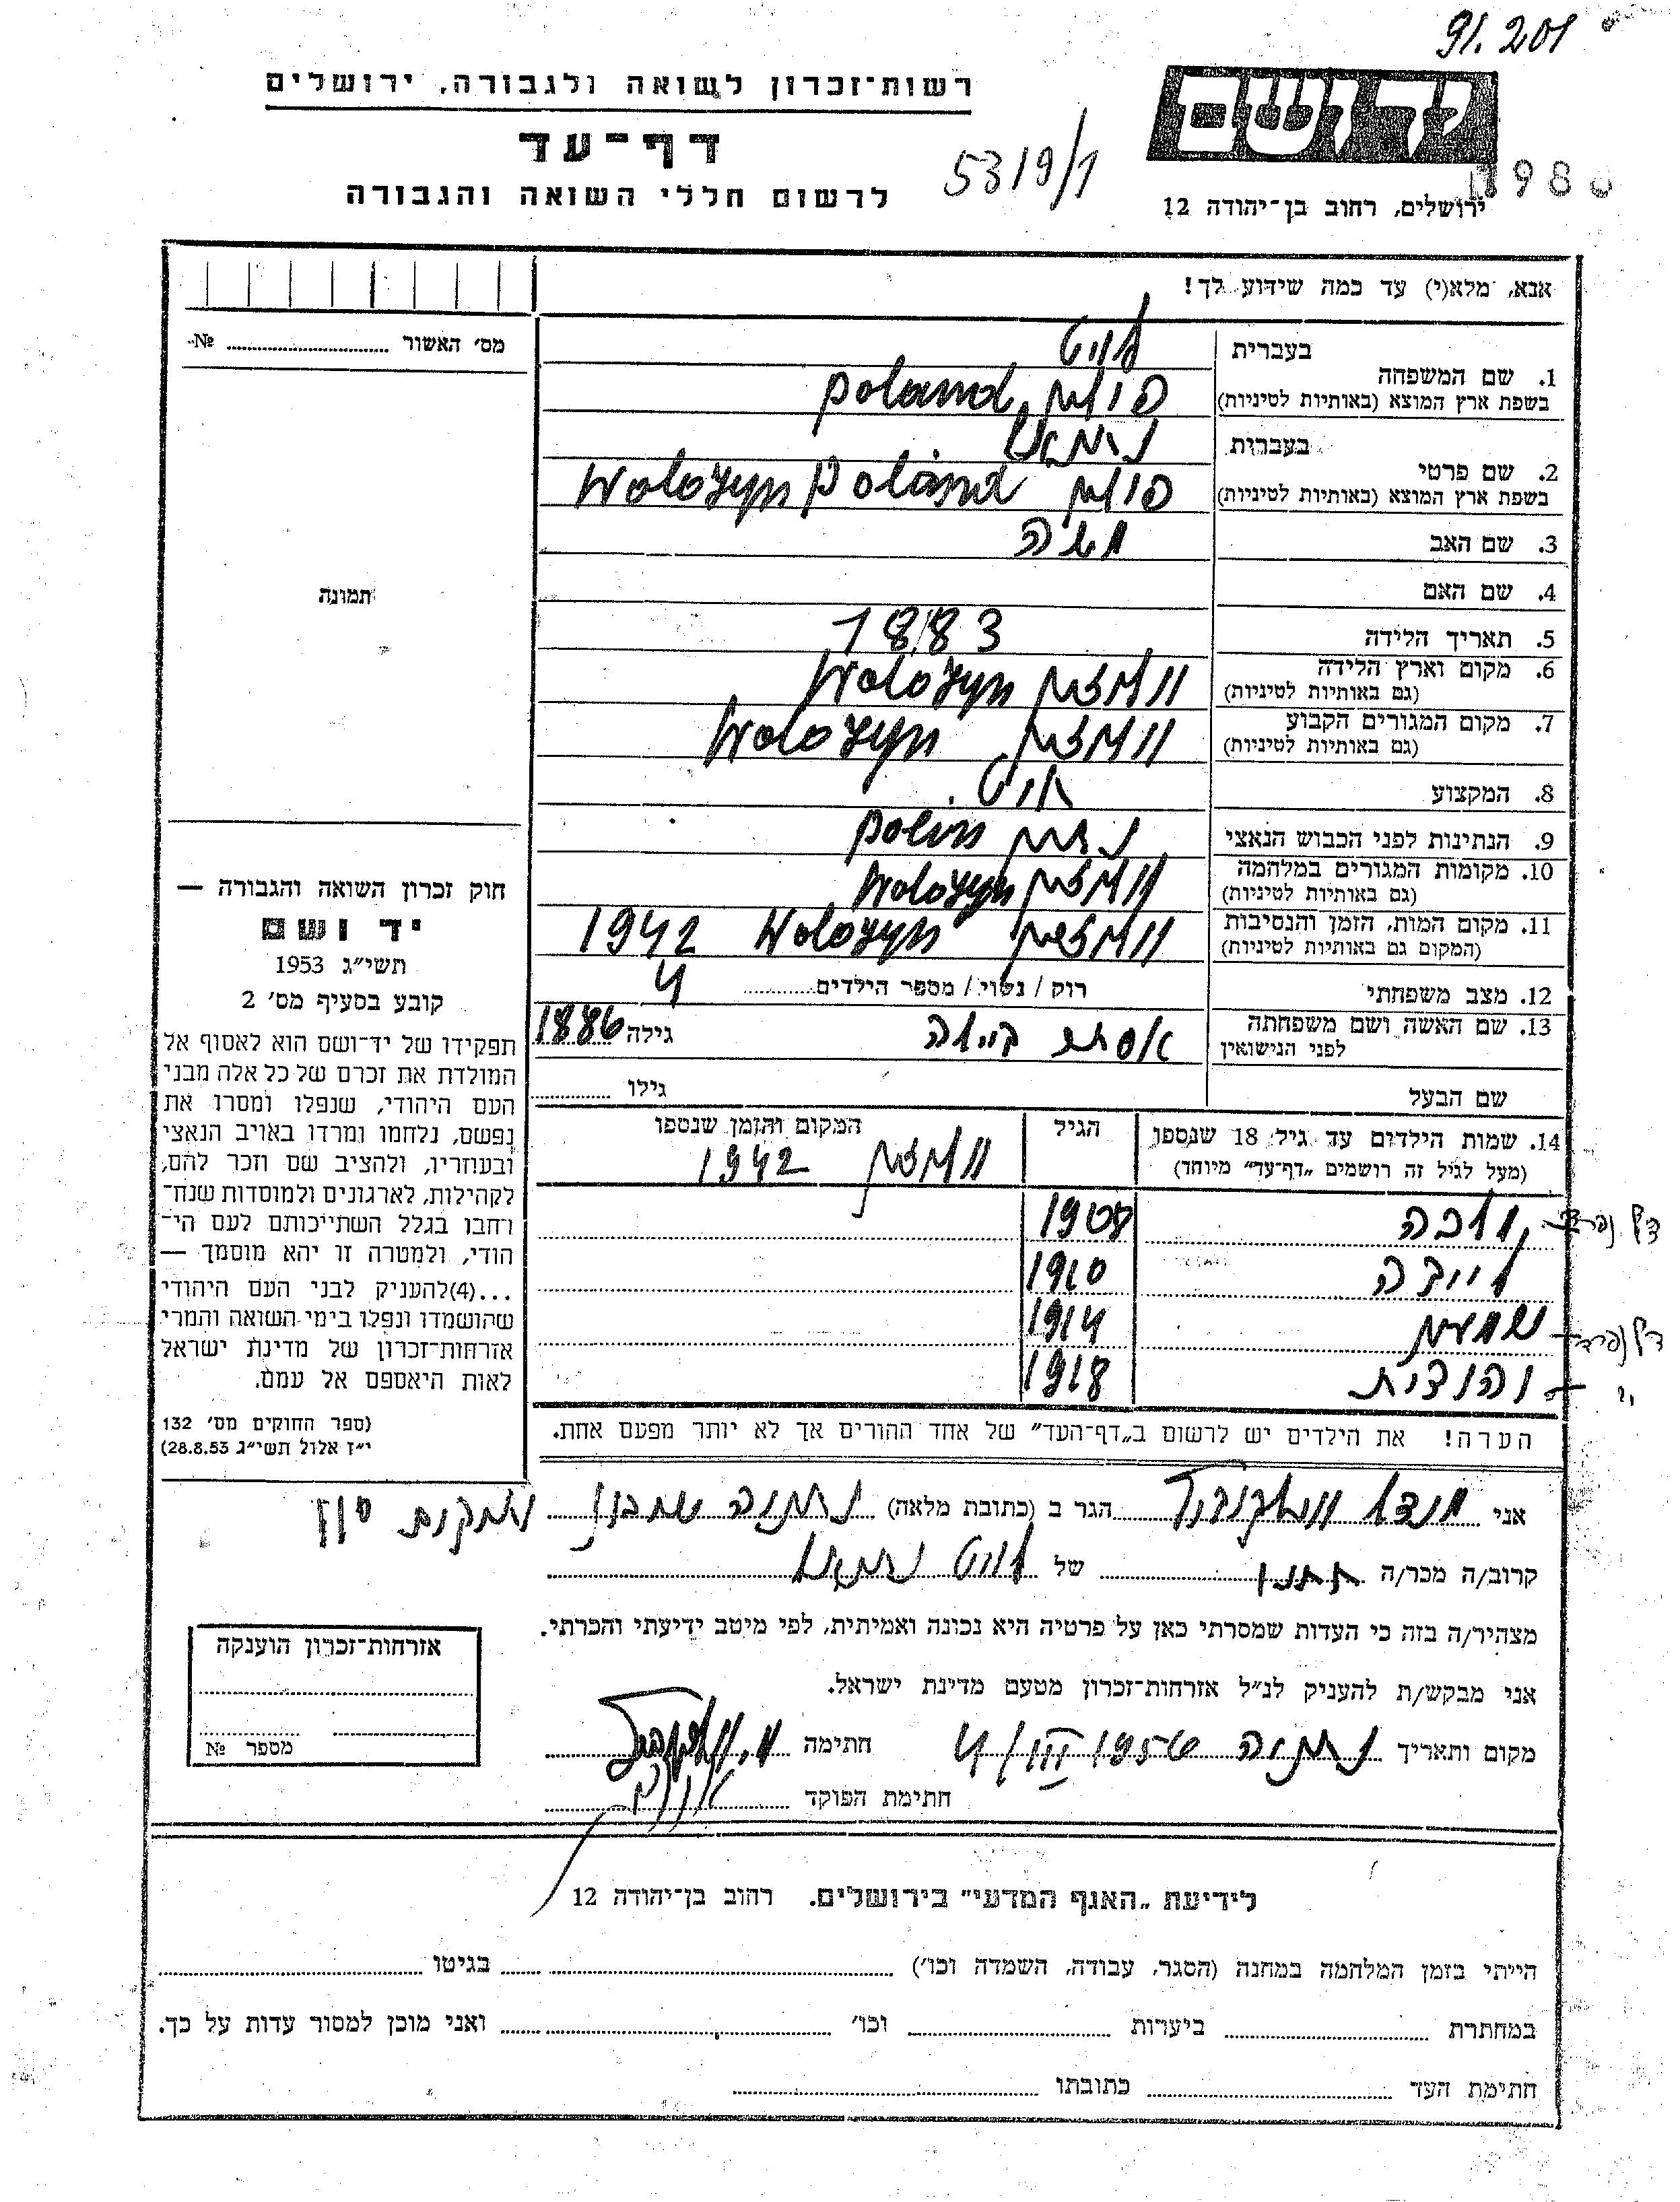 91.201
רשות־זכרון לשואה ולגבורה, ירושלים
דף־עד
לרשום חללי השואה והגבורה
5319/1
ירושלים, רחוב בן־יהודה 12
אנא, מלא(י) עד כמה שידוע לך!
מס׳ האשור № 
1. שם המשפחה
בעברית
בשפת ארץ המוצא (באותיות לטיניות) פולין Poland
2. שם פרטי
בעברית
בשפת ארץ המוצא (באותיות לטיניות) פולין Wolozyn Poland
3. שם האב משה
4. שם האם
5. תאריך הלידה 1883
6. מקום וארץ הלידה
(גם באותיות לטיניות) וולוזין Wolozyn
7. מקום המגורים הקבוע
(גם באותיות לטיניות) וולוזין Wolozyn
8. המקצוע
9. הנתינות לפני הכבוש הנאצי polin
10. מקומות המגורים במלחמה
(גם באותיות לטיניות) וולוזין Wolozyn
11. מקום המות, הזמן והנסיבות
(המקום גם באותיות לטיניות) וולוזין Wolozyn 1942
12. מצב משפחתי רוק / נשוי / מספר הילדים 4
13. שם האשה ושם משפחתה
לפני הנישואין אסתר גילה 1886
שם הבעל גילו
14. שמות הילדים עד גיל 18 שנספו
(מעל לגיל זה רושמים "דף־עד" מיוחד)
הגיל
המקום והזמן שנספו
וולוזין 1942
1908
1910
1914
יהודית 1918
דף נפרד
דף נפרד
הערה! את הילדים יש לרשום ב"דף־העד" של אחד ההורים אך לא יותר מפעם אחת.
תמונה
חוק זכרון השואה והגבורה —
יד ושם
תשי״ג 1953
קובע בסעיף מס׳ 2
תפקידו של יד־ושם הוא לאסוף אל
המולדת את זכרם של כל אלה מבני
העם היהודי, שנפלו ומסרו את
נפשם, נלחמו ומרדו באויב הנאצי
ובעוזריו, ולהציב שם וזכר להם,
לקהילות, לארגונים ולמוסדות שנח־
רחבו בגלל השתייכותם לעם הי־
הודי, ולמטרה זו יהא מוסמך —
...(4)להעניק לבני העם היהודי
שהושמדו ונפלו בימי השואה והמרי
אזרחות־זכרון של מדינת ישראל
לאות היאספם אל עמם.
(ספר החוקים מס׳ 132
י״ז אלול תשי״ג 28.8.53)
אני הגר ב (כתובת מלאה) נתניה שכון ותקים
קרוב/ה מכר/ה חתנו של
מצהיר/ה בזה כי העדות שמסרתי כאן על פרטיה היא נכונה ואמיתית, לפי מיטב ידיעתי והכרתי.
אני מבקש/ת להעניק לנ״ל אזרחות־זכרון מטעם מדינת ישראל.
מקום ותאריך נתניה חתימה
חתימת הפוקד
אזרחות־זכרון הוענקה
מספר №
לידיעת "האגף המדעי" בירושלים. רחוב בן־יהודה 12
הייתי בזמן המלחמה במחנה (הסגר, עבודה, השמדה וכו׳) בגיטו
במחתרת ביערות וכו׳ ואני מוכן למסור עדות על כך.
חתימת העד כתובתו